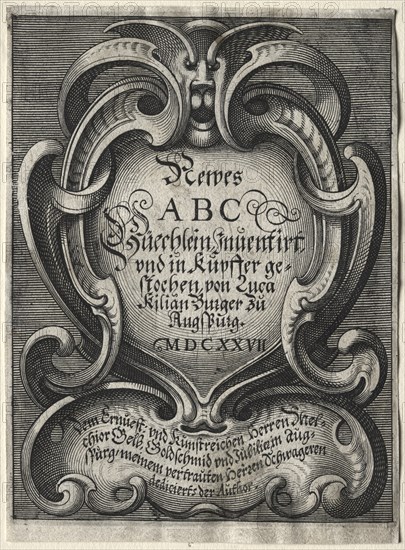 Newes
ABC
Büechlein Inventirt
vnd in Kupffer ge-
stochen, von Luca
Kilian Burger zu
Augspurg.
MDCXXVII
Dem Ernuest vnd Kunstreichen Herren Mel-
chior Gelb Goldschmid vnd Jubilier in Aug-
spurg meinem vertrauten Herren Schwageren
dediciert der Author